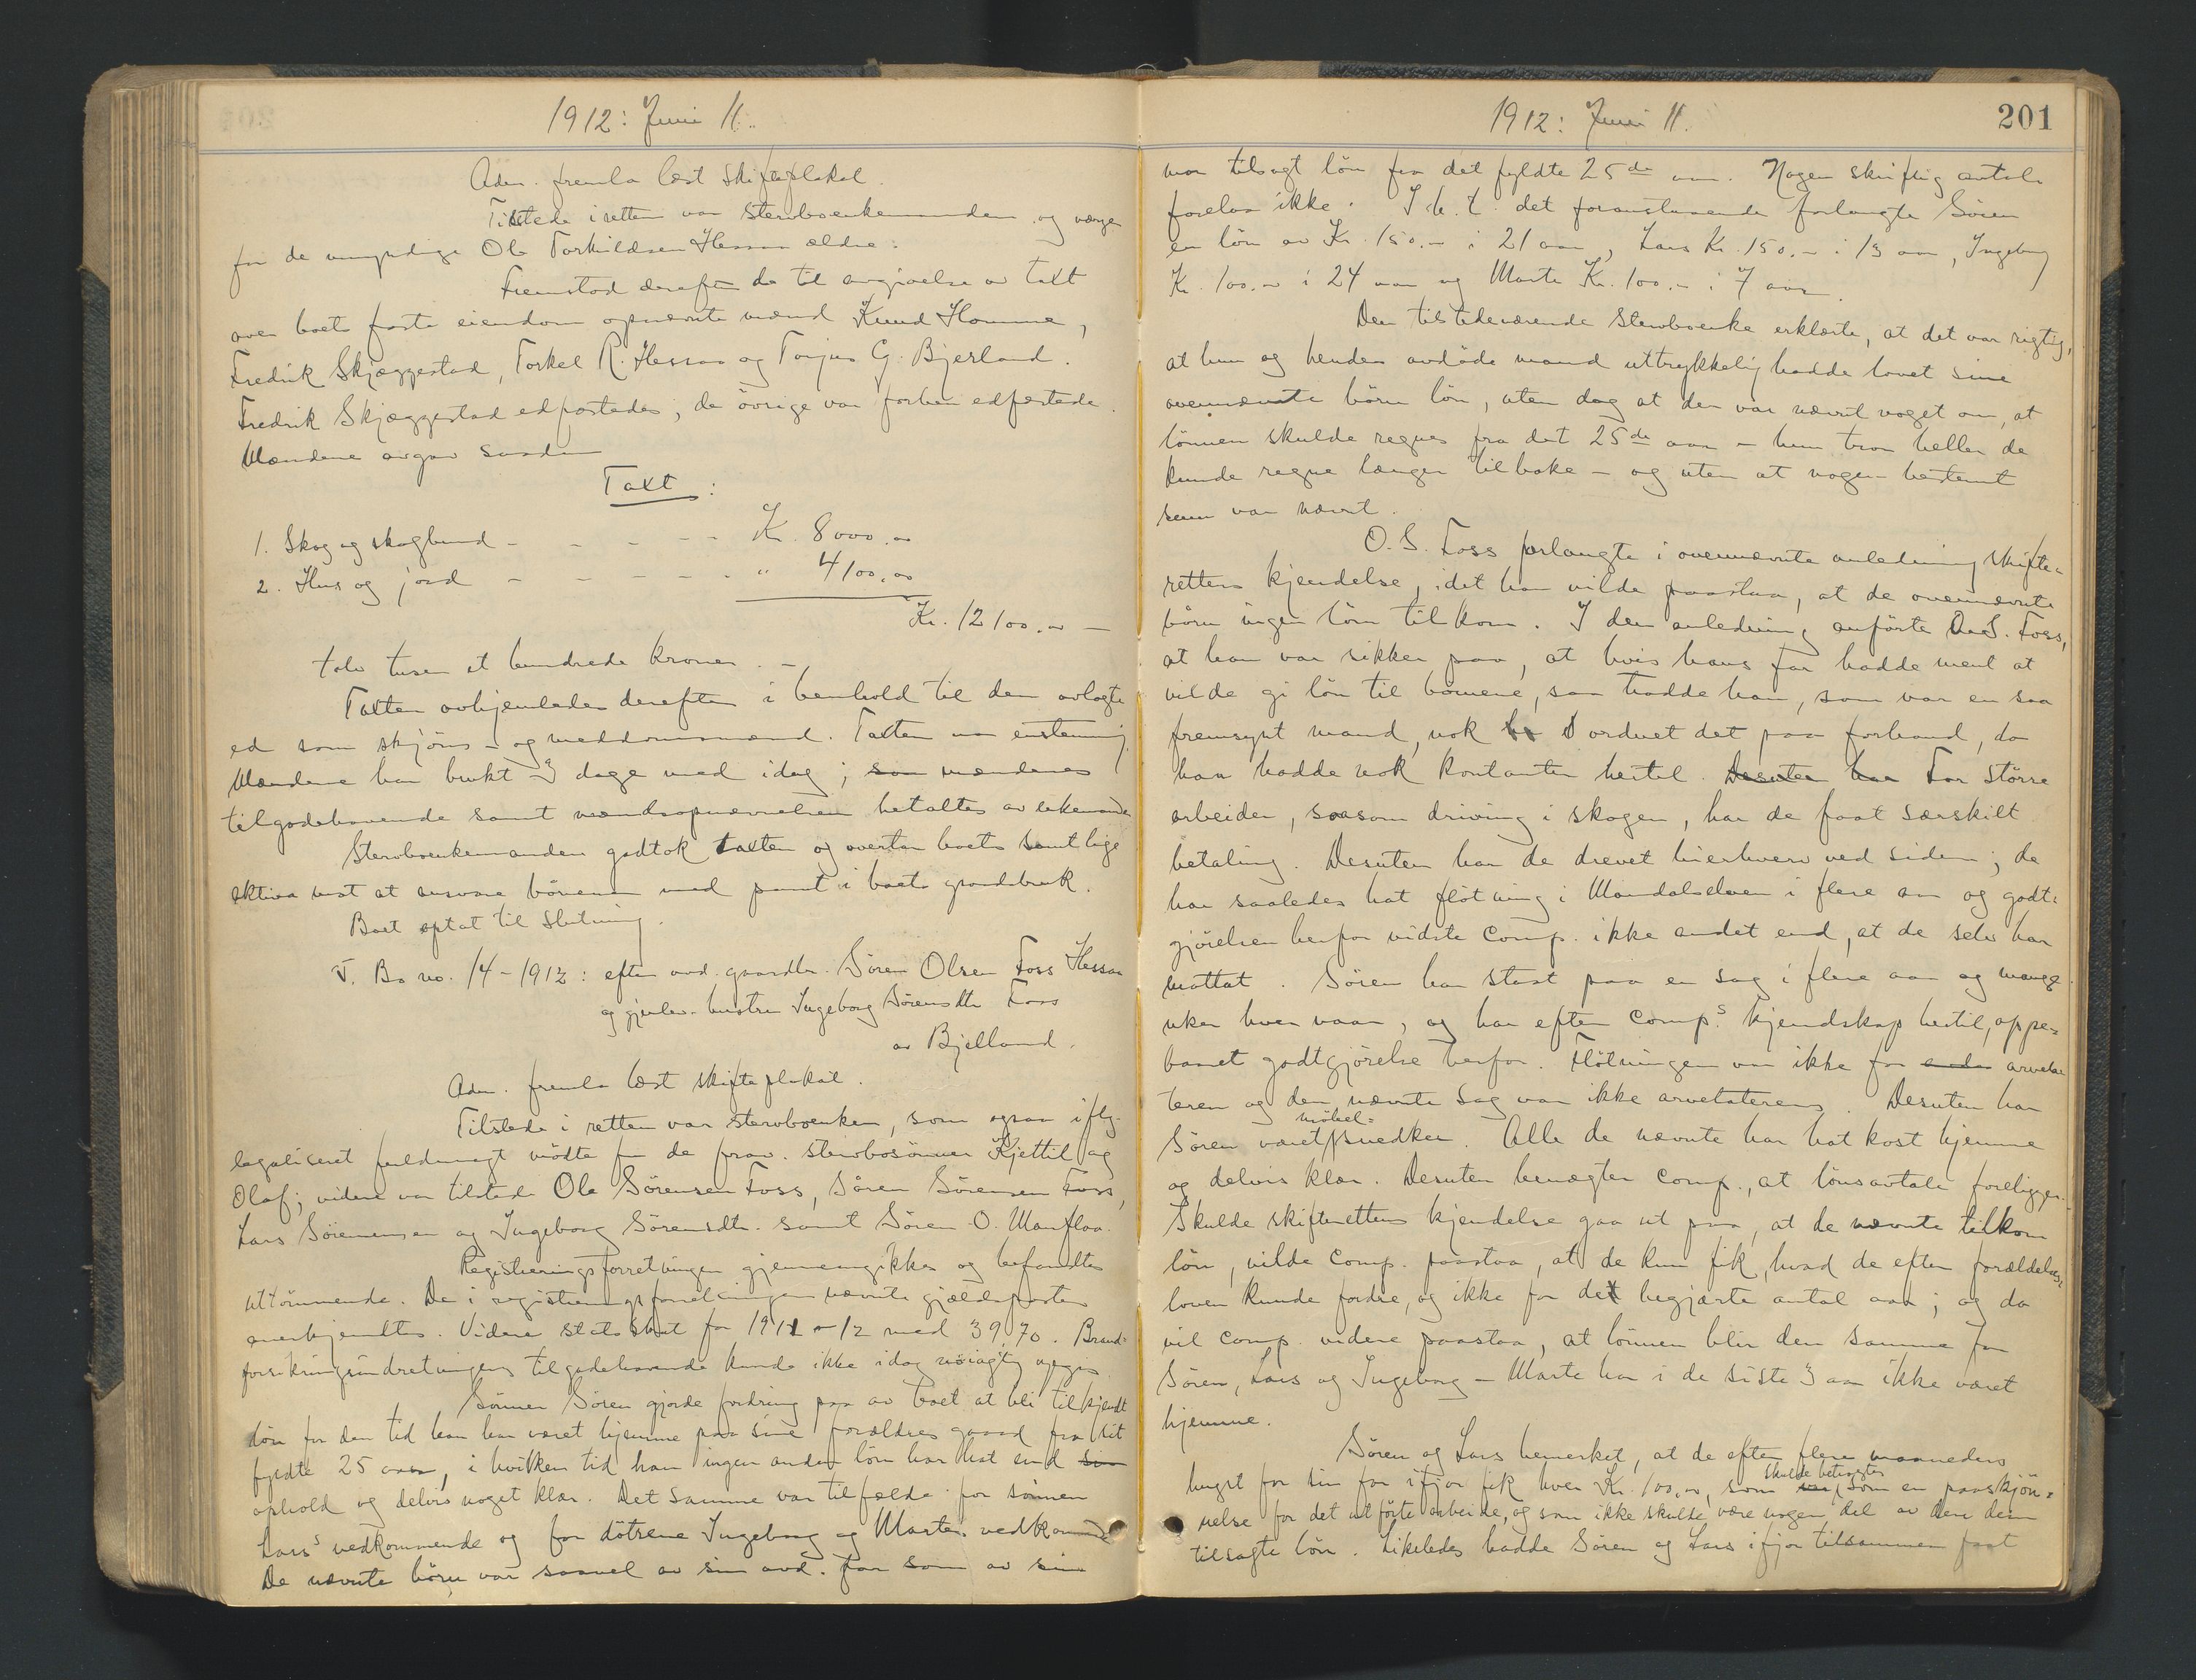 1912: Juni 11.
Adm. fremla læst skifteplakat.
Tilstede i retten var stervboenkemanden og værge
for de umyndige Ole Torkildsen Hessaa ældre.
Fremstod derefter de til avgivelse av taxt
over boets faste eiendom opnævnte mænd Knud Homme,
Fredrik Skjæggestad, Torkel R. Hessaa og Torjus G. Bjerland.
Fredrik Skjæggestad edfæstedes, de övrige var forhen edfæstede.
Mændene avgav saadan
Taxt:
1. Skog og skogbund - - - - - Kr. 8000.00
2. Hus og jord - - - - - - " 4100.00
Kr. 12100.00 -
tolv tusen et hundrede kroner. -
Taxten avhjemledes derefter i henhold til den avlagte
ed som skjöns- og meddomsmænd. Taxten var enstemmig.
Mændene har brukt 3 dage med idag; saa mændenes
tilgodehavende samt mændsopnævnelsen betaltes av enkemanden
Stervboenkemanden godtok taxten og overtar boets samtlige
aktiva mot at ansvare börnene med pant i boets gaardsbruk.
Boet optat til slutning.
V. Bo no. 14-1912: efter avd. gaardbr. Sören Olsen Foss Hessaa
og gjenlev. hustru Ingeborg Sörensdtr. Foss
av Bjelland.
Adm. fremla læst skifteplakat.
Tilstede i retten var stervboenken, som ogsaa iflg.
legaliseret fuldmagt mödte for de frav. sterbosönner Kjettil og
Olaf; videre var tilstede Ole Sörensen Foss, Sören Sörensen Foss,
Lars Sörensen og Ingeborg Sörensdtr. samt Sören O. Manflaa.
Registreringsforretningen gjennemgikkes og befandtes
uttömmende. De i registreringsforretningen nævnte gjældsposter
anerkjendtes. Videre statsskat for 1911-12 med 39.70. Brand-
forsikringsindretningens tilgodehavende kunde ikke idag nöiagtig opgis.
Sönnen Sören gjorde fordring paa av boet at bli tilkjendt
lön for den tid han har været hjemme paa sine forældres gaard fra sit
fyldte 25 aar, i hvilken tid han ingen anden lön har hat end sin
ophold og delvis noget klær. Det samme var tilfælde for sönnen
Lars' vedkommende og for dötrene Ingeborg og Martes vedkommende
De nævnte börn var saavel av sin avd. far som av sin
1912: Juni 11. 201
mor tilsagt lön fra det fyldte 25de aar. Nogen skriftlig avtale
forelaa ikke. I h. t. det foranstaaende forlangte Sören
en lön av Kr. 150.- i 21 aar, Lars Kr. 150.- i 13 aar, Ingeborg
Kr. 100.00 i 24 aar og Marte Kr. 100.- i 7 aar.
Den tilstedeværende sterboenke erklærte, at det var rigtig,
at hun og hendes avdöde mand uttrykkelig hadde lovet sine
ovennævnte börn lön, uten dog at der var nævnt noget om, at
lönnen skulde regnes fra det 25de aar - hun tror heller de
kunde regne længer tilbake - og uten at nogen bestemt
sum var nævnt.
O. S. Foss forlangte i ovennævnte anledning skifte-
rettens kjendelse, idet han vilde paastaa, at de ovennævnte
börn ingen lön tilkom. I den anledning anförte O. S. Foss,
at han var sikker paa, at hvis hans far hadde ment at
vilde gi lön til börnene, saa hadde han, som var en saa
fremsynt mand, nok ordnet det paa forhand, da
han hadde nok kontanter hertil. Desuten har For större
arbeider, saasom driving i skogen, har de faat særskilt
betaling. Desuten har de drevet bierhverv ved siden; de
har saaledes hat flötning i Mandalselven i flere aar og godt-
gjörelsen herfor vidste comp. ikke andet end, at de selv har
mottat. Sören har staat paa en sag i flere aar og mange
uker hver vaar, og har efter comp.s kjendskap hertil, oppe-
baaret godtgjörelse herfor. Flötningen var ikke for enke arvela-
teren og den nævnte sag var ikke arvelaterens. Desuten har
Sören været möbel-snedker. Alle de nævnte har hat kost hjemme
og delvis klær. Desuten benegter comp., at lönsavtale foreligger.
Skulde skifterettens kjendelse gaa ut paa, at de nævnte tilkom
lön, vilde comp. paastaa, at de kun fik, hvad de efter forældelses-
loven kunde fordre, og ikke for det begjærte antal aar; og da
vil comp. videre paastaa, at lönnen blir den samme for
Sören, Lars og Ingeborg - Marte har i de siste 3 aar ikke været
hjemme.
Sören og Lars bemerket, at de efter flere maaneders
hugst for sin far ifjor fik hver Kr. 100.00, som var skulde betragtes som en paaskjön-
nelse for det utförte arbeide, og som ikke skulde være nogen del av den dem
tilsagte lön. Likeledes hadde Sören og Lars ifjor tilsammen faat